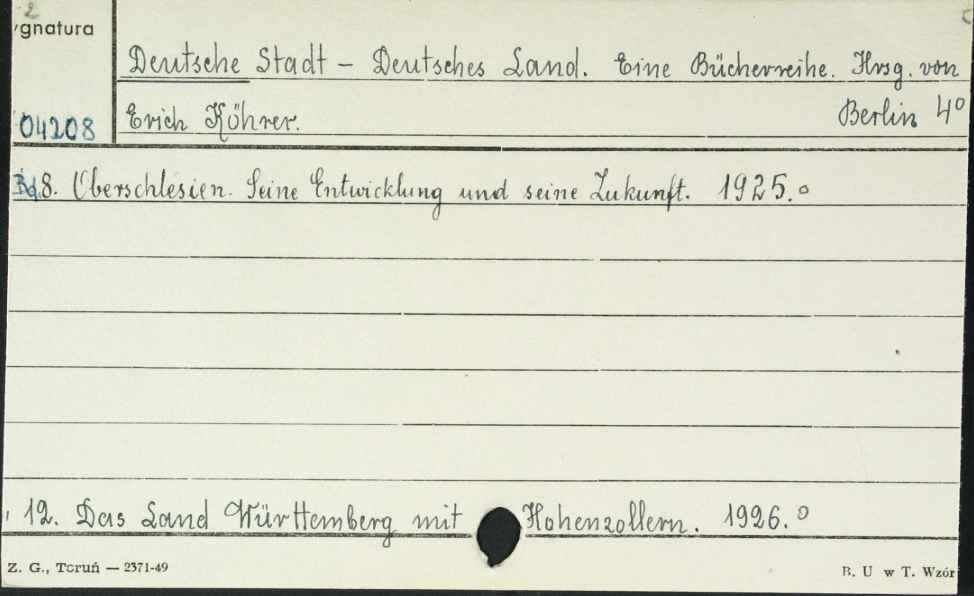 2
ygnatura
Deutsche Stadt – Deutsches Land. Eine Bücherreihe. Hrsg. von
04208 Erich Köhrer. Berlin 4°
Bd. 8. Oberschlesien. Seine Entwicklung und seine Zukunft. 1925.°
12. Das Land Württemberg mit Hohenzollern. 1926.°
Z. G., Toruń — 2371-49 B. U w T. Wzór